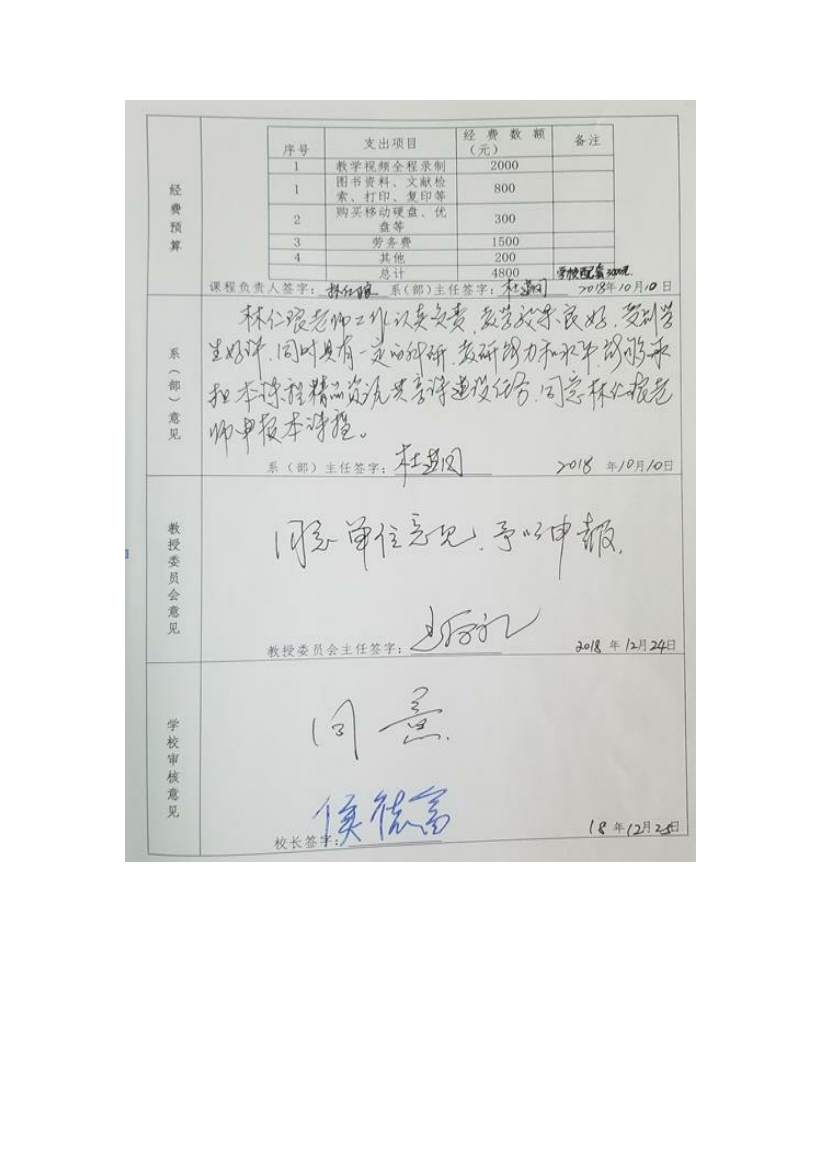 经费预算
序号 支出项目 经费数额（元） 备注
1 教学视频全程录制 2000
1 图书资料、文献检索、打印、复印等 800
2 购买移动硬盘、优盘等 300
3 劳务费 1500
4 其他 200
总计 4800 学校配套
课程负责人签字： 林仁琅 系(部)主任签字： 2018年10月10日
系（部）意见
林仁琅老师工作认真负责，教学效果良好，受到学
生好评，同时具有一定的科研、教研能力和水平，能够承
担本课程精品资源共享课建设任务，同意林仁琅老
师申报本课程。
系（部）主任签字： 2018年10月10日
教授委员会意见
同意单位意见，予以申报。
教授委员会主任签字： 2018年12月24日
学校审核意见
同意
校长签字： 侯德富 18年12月25日